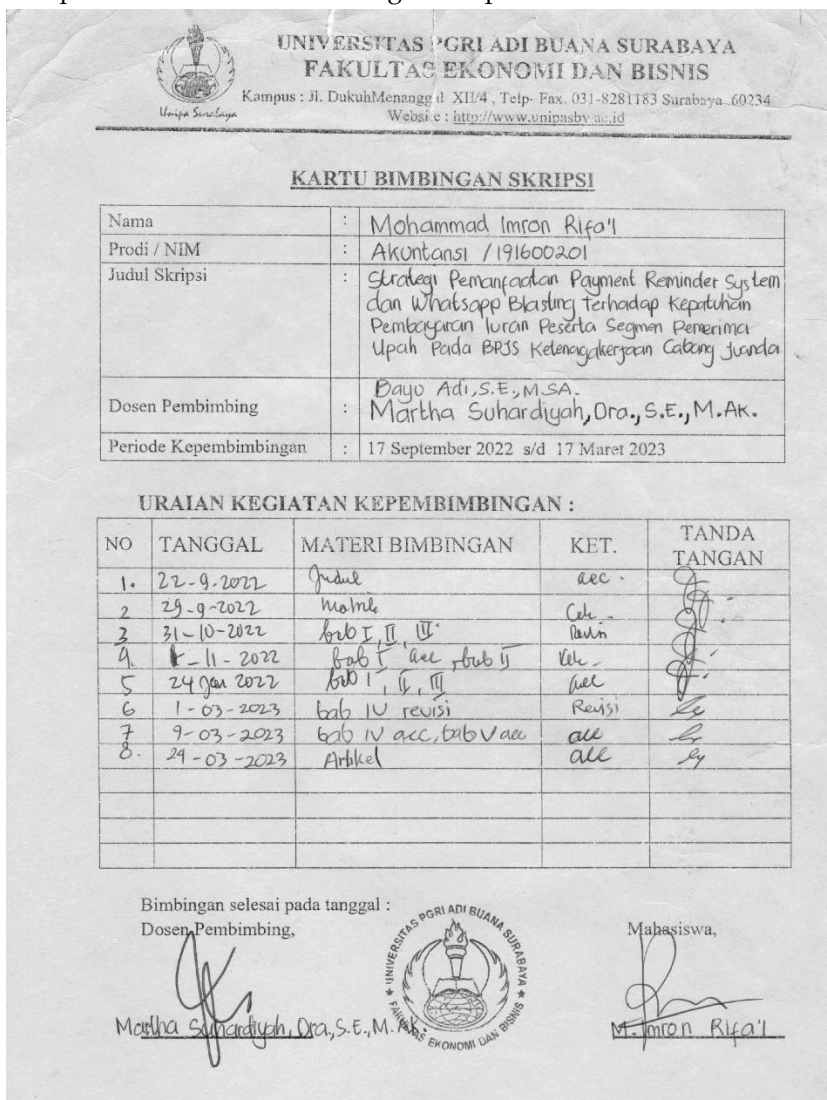 UNIVERSITAS PGRI ADI BUANA SURABAYA
FAKULTAS EKONOMI DAN BISNIS
Kampus : Jl. DukuhMenanggal XII/4 , Telp- Fax. 031-8281183 Surabaya 60234
Website : http://www.unipasby.ac.id
Unipa Surabaya
KARTU BIMBINGAN SKRIPSI
Nama : Mohammad Imron Rifa'i
Prodi / NIM : Akuntansi / 191600201
Judul Skripsi : Strategi Pemanfaatan Payment Reminder System
dan Whatsapp Blasting Terhadap Kepatuhan
Pembayaran Iuran Peserta Segmen Penerima
Upah Pada BPJS Ketenagakerjaan Cabang Juanda
Bayu Adi, S.E., M.SA.
Dosen Pembimbing : Martha Suhardiyah, Dra., S.E., M.AK.
Periode Kepembimbingan : 17 September 2022 s/d 17 Maret 2023
URAIAN KEGIATAN KEPEMBIMBINGAN :
NO TANGGAL MATERI BIMBINGAN KET. TANDA
TANGAN
1. 22-9-2022 Judul acc.
2 29-9-2022
3 31-10-2022 bab I, II, III Revisi
4. -11-2022 bab I acc, bab II
5 24 Jan 2022 bab I, II, III acc
6 1-03-2023 bab IV revisi Revisi
7 9-03-2023 bab IV acc, bab V acc acc
8. 29-03-2023 Artikel acc
Bimbingan selesai pada tanggal :
Dosen Pembimbing, Mahasiswa,
UNIVERSITAS PGRI ADI BUANA SURABAYA
FAKULTAS EKONOMI DAN BISNIS
Martha Suhardiyah, Dra., S.E., M.AK. M. Imron Rifa'i